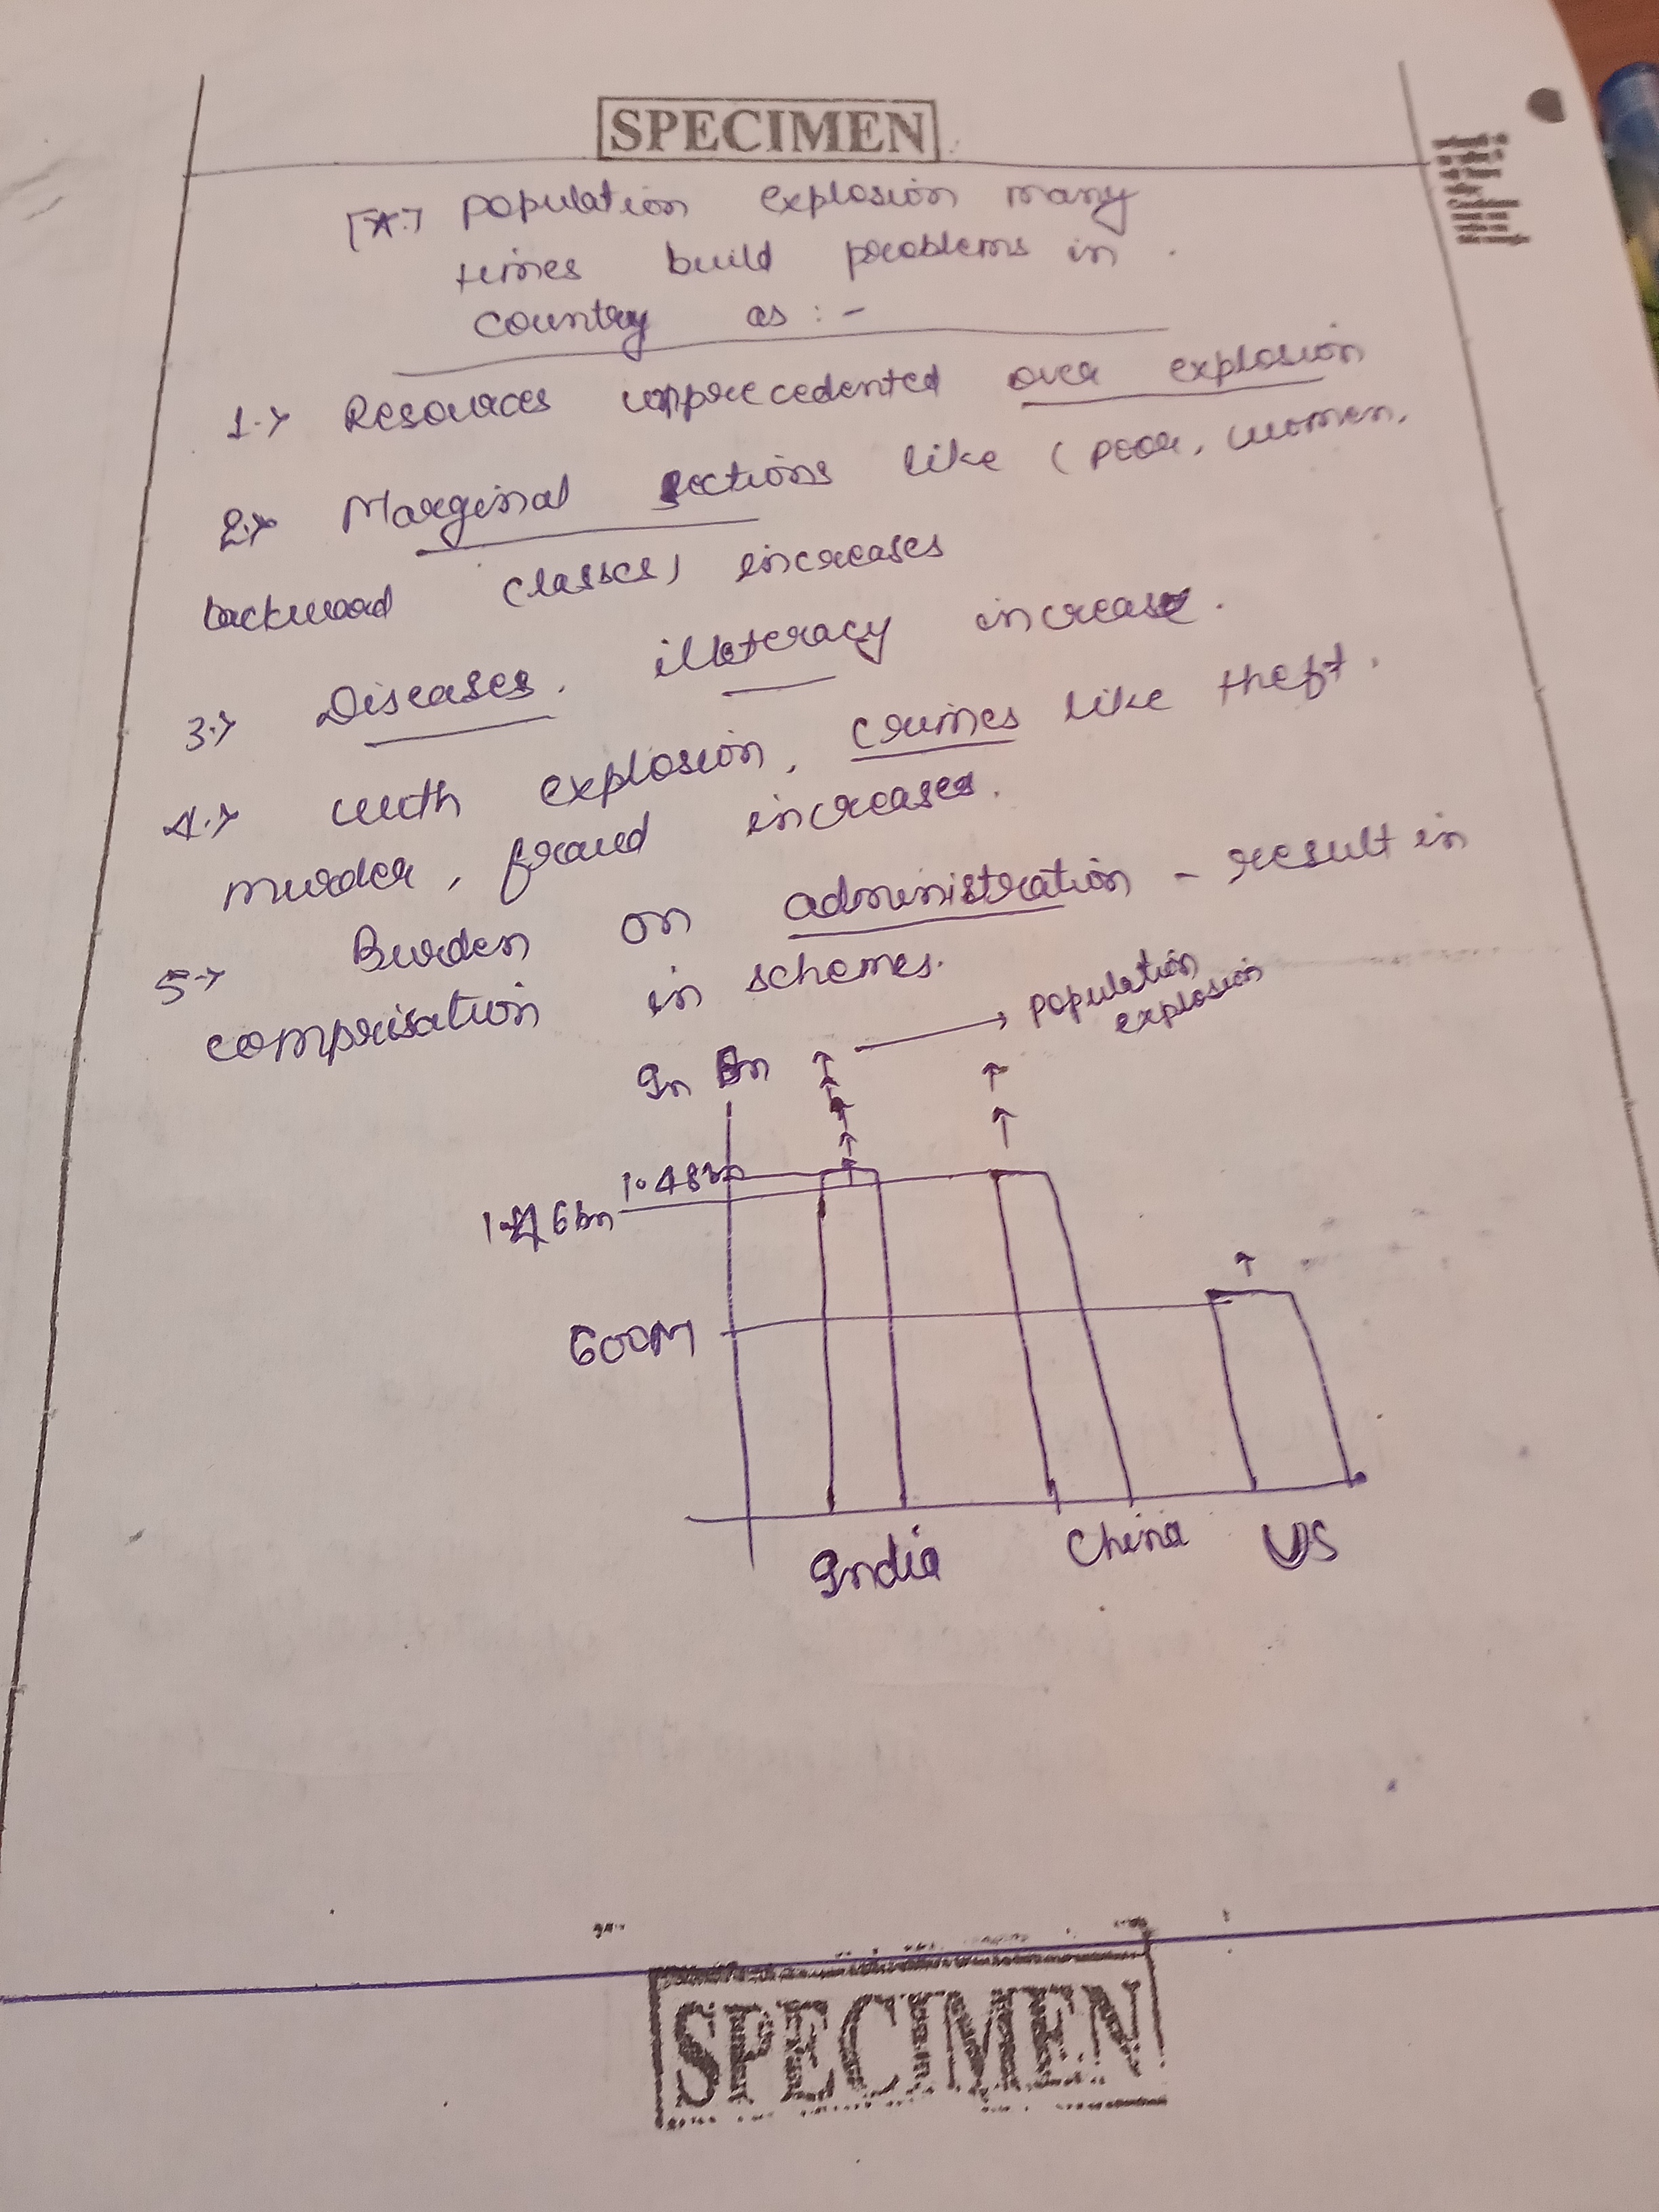 SPECIMEN
[*:] Population explosion many
times build problems in
country as :-
1.→ Resources upprecedented over explosion
2.→ Marginal sections like (poor, women,
backward classes) increases
3.→ Diseases, illiteracy increase.
4.→ with explosion, crimes like theft,
murder, fraud increases.
5→ Burden on administration - result in
comprisation in schemes.
In Bn → population
explosion
1.48bn
1.46bn
600M
India China US
SPECIMEN